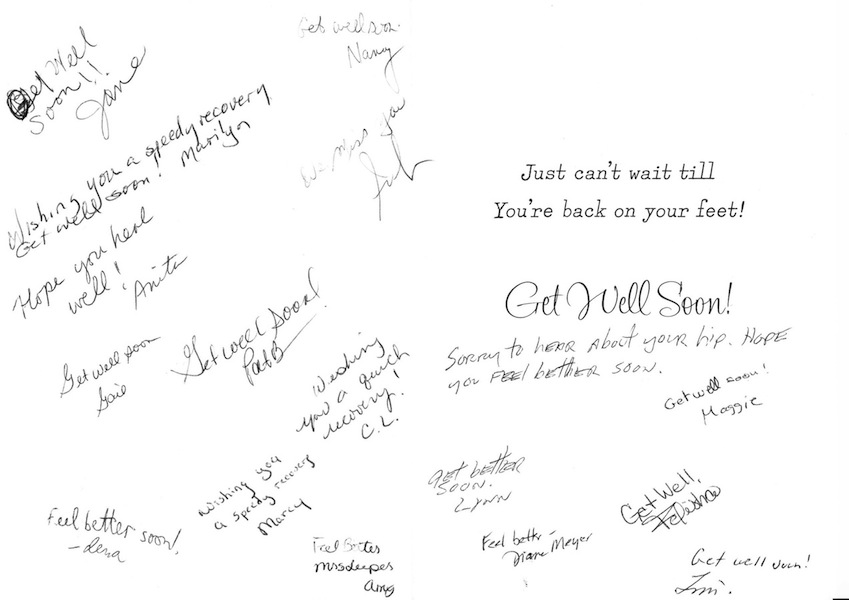 Get Well
Soon!!
Jane
Get well soon.
Nancy
Wishing you a speedy recovery
Get well soon! Marilyn
We miss you
Hope you heal
well!
Anita
Get well soon
Gail
Get well soon!
Pat B
Wishing
you a quick
recovery!
C.L.
Wishing you
a speedy recovery
Marcy
Feel better soon!
-Lena
Feel Better
Amy
Just can't wait till
You're back on your feet!
Get Well Soon!
Sorry to hear about your hip. Hope
you feel better soon.
Get well soon!
Maggie
Get better
soon.
Lynn
Get Well,
Feel better -
Diane Meyer
Get well soon!